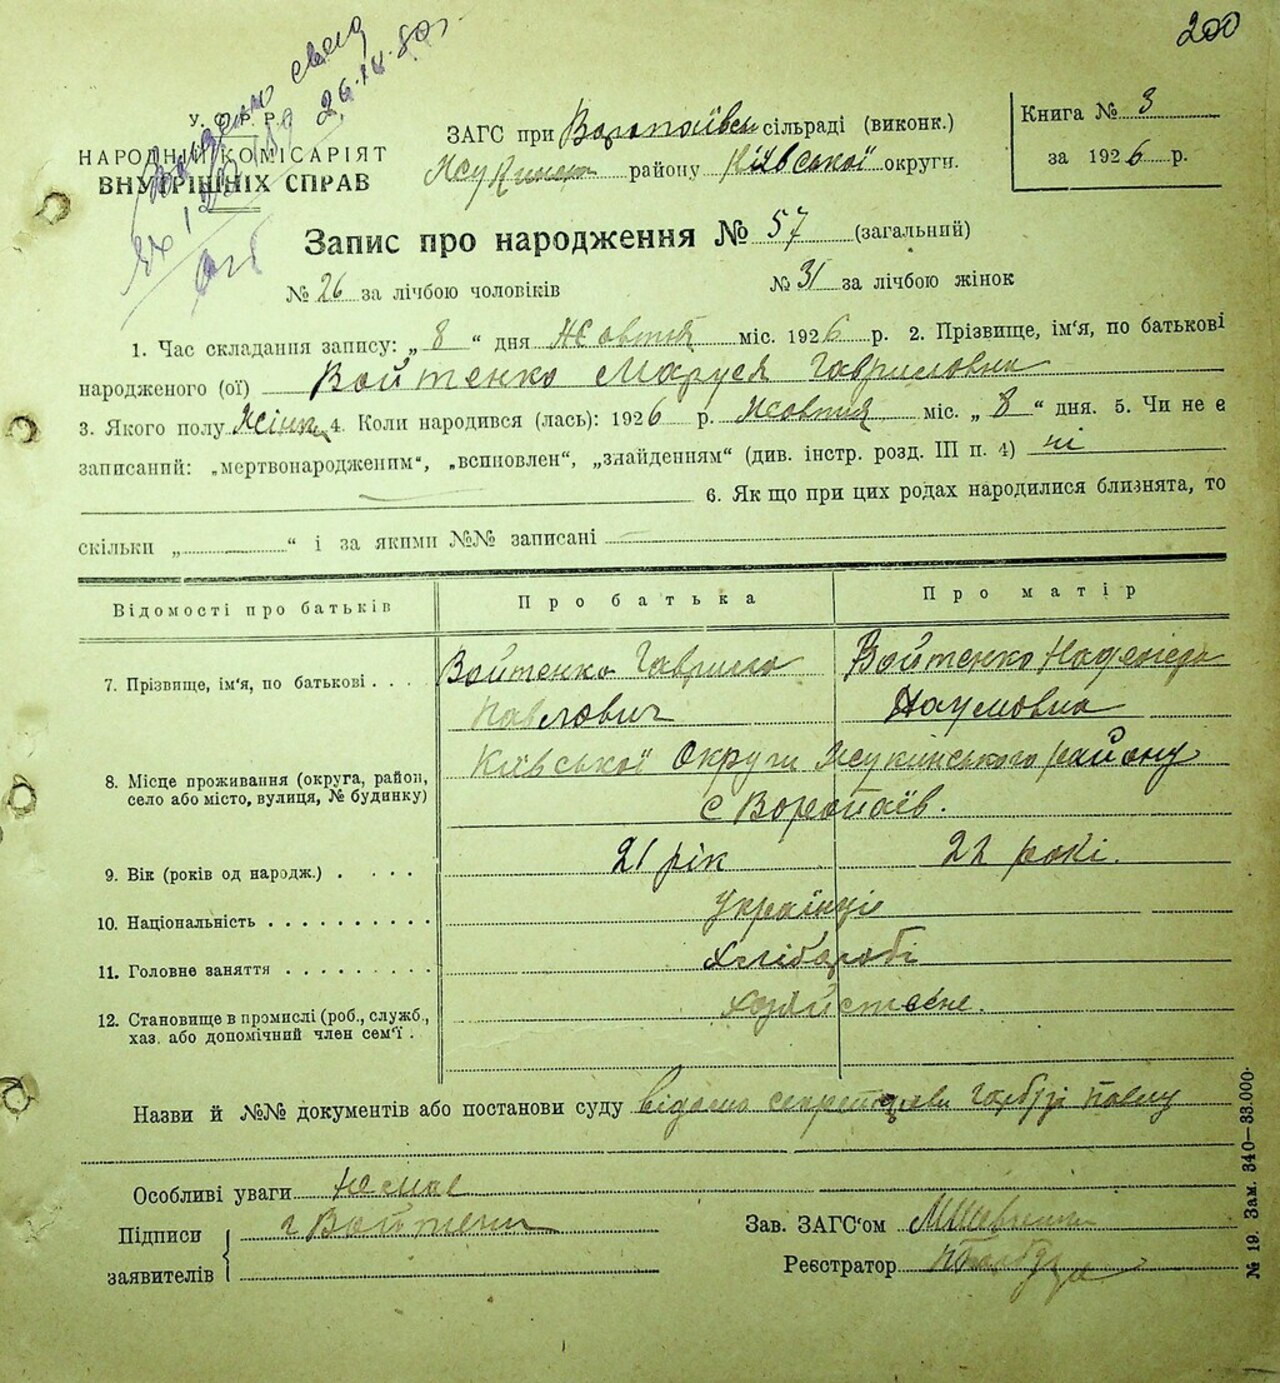 200
Видано свід
26.IV.80г
У. С. Р. Р.
НАРОДНІЙ КОМІСАРІЯТ
ВНУТРІШНІХ СПРАВ
ЗАГС при Воропаївськ сільраді (виконк.)
Жукинськ району Київської округи.
Книга № 3
за 1926 р.
Запис про народження № 57 (загальний)
№ 26 за лічбою чоловіків № 31 за лічбою жінок
1. Час складання запису: „ 8 “ дня Жовтня міс. 1926 р. 2. Прізвище, ім'я, по батькові
народженого (ої) Войтенко Маруся Гавриловна
3. Якого полу Жінк 4. Коли народився (лась): 1926 р. Жовтня міс. „ 8 “ дня. 5. Чи не є
записаний: „мертвонародженим“, „всиновлен“, „знайденням“ (див. інстр. розд. III п. 4) ні
6. Як що при цих родах народилися близнята, то
скільки „ “ і за якими №№ записані
Відомості про батьків Про батька Про матір
7. Прізвище, ім'я, по батькові . . . Войтенко Гаврило Войтенко Надежда
Павлович Наумовна
8. Місце проживання (округа, район, Київської Округи Жукинського району
село або місто, вулиця, № будинку) с Воропаїв.
9. Вік (років од народж.) . . . . 21 рік 22 рокі.
10. Національність . . . . . . . . . . Українці
11. Головне заняття . . . . . . . . . Хлібаробі
12. Становище в промислі (роб., служб., хозяйствене.
хаз. або допомічний член сем'ї .
Назви й №№ документів або постанови суду відомо секретареві Гарбузі Павлу
Особливі уваги немає
Підписи г Войтенко Зав. ЗАГС'ом
заявителів Реєстратор ПГарбуз
№ 19. Зам. 340—33.000.